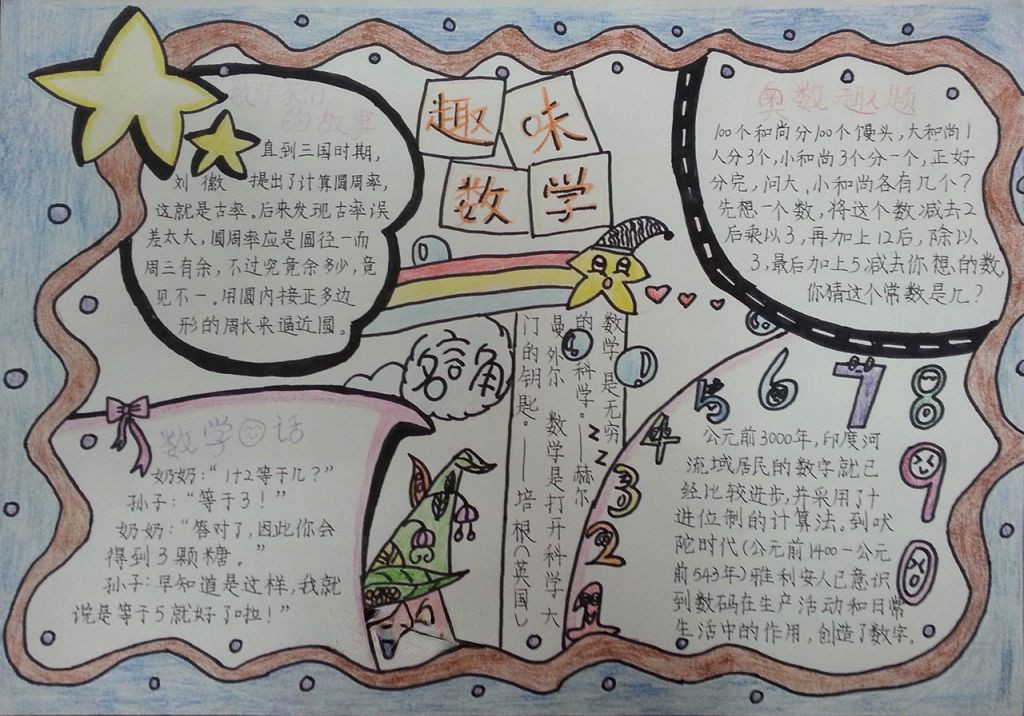 趣味
数学
数学家们
的故事
直到三国时期，
刘徽 提出了计算圆周率，
这就是古率。后来发现古率误
差太大，圆周率应是圆径一而
周三有余，不过究竟余多少，竟
见不一。用圆内接正多边
形的周长来逼近圆。
奥数趣题
100个和尚分100个馒头，大和尚1
人分3个，小和尚3个分一个，正好
分完，问大、小和尚各有几个？
先想一个数，将这个数减去2
后乘以3，再加上12后，除以
3，最后加上5减去你想的数，
你猜这个常数是几？
名言角
数学是无穷
的科学。——赫尔
曼外尔 数学是打开科学大
门的钥匙。——培根（英国）
数学 话
奶奶：“1+2等于几？”
孙子：“等于3！”
奶奶：“答对了，因此你会
得到3颗糖。”
孙子：早知道是这样，我就
说是等于5就好了啦！”
1
2
3
4
5
6
7
8
9
0
z
z
z
公元前3000年，印度河
流域居民的数字就已
经比较进步，并采用了十
进位制的计算法，到吠
陀时代（公元前1400－公元
前543年）雅利安人已意识
到数码在生产活动和日常
生活中的作用，创造了数字。